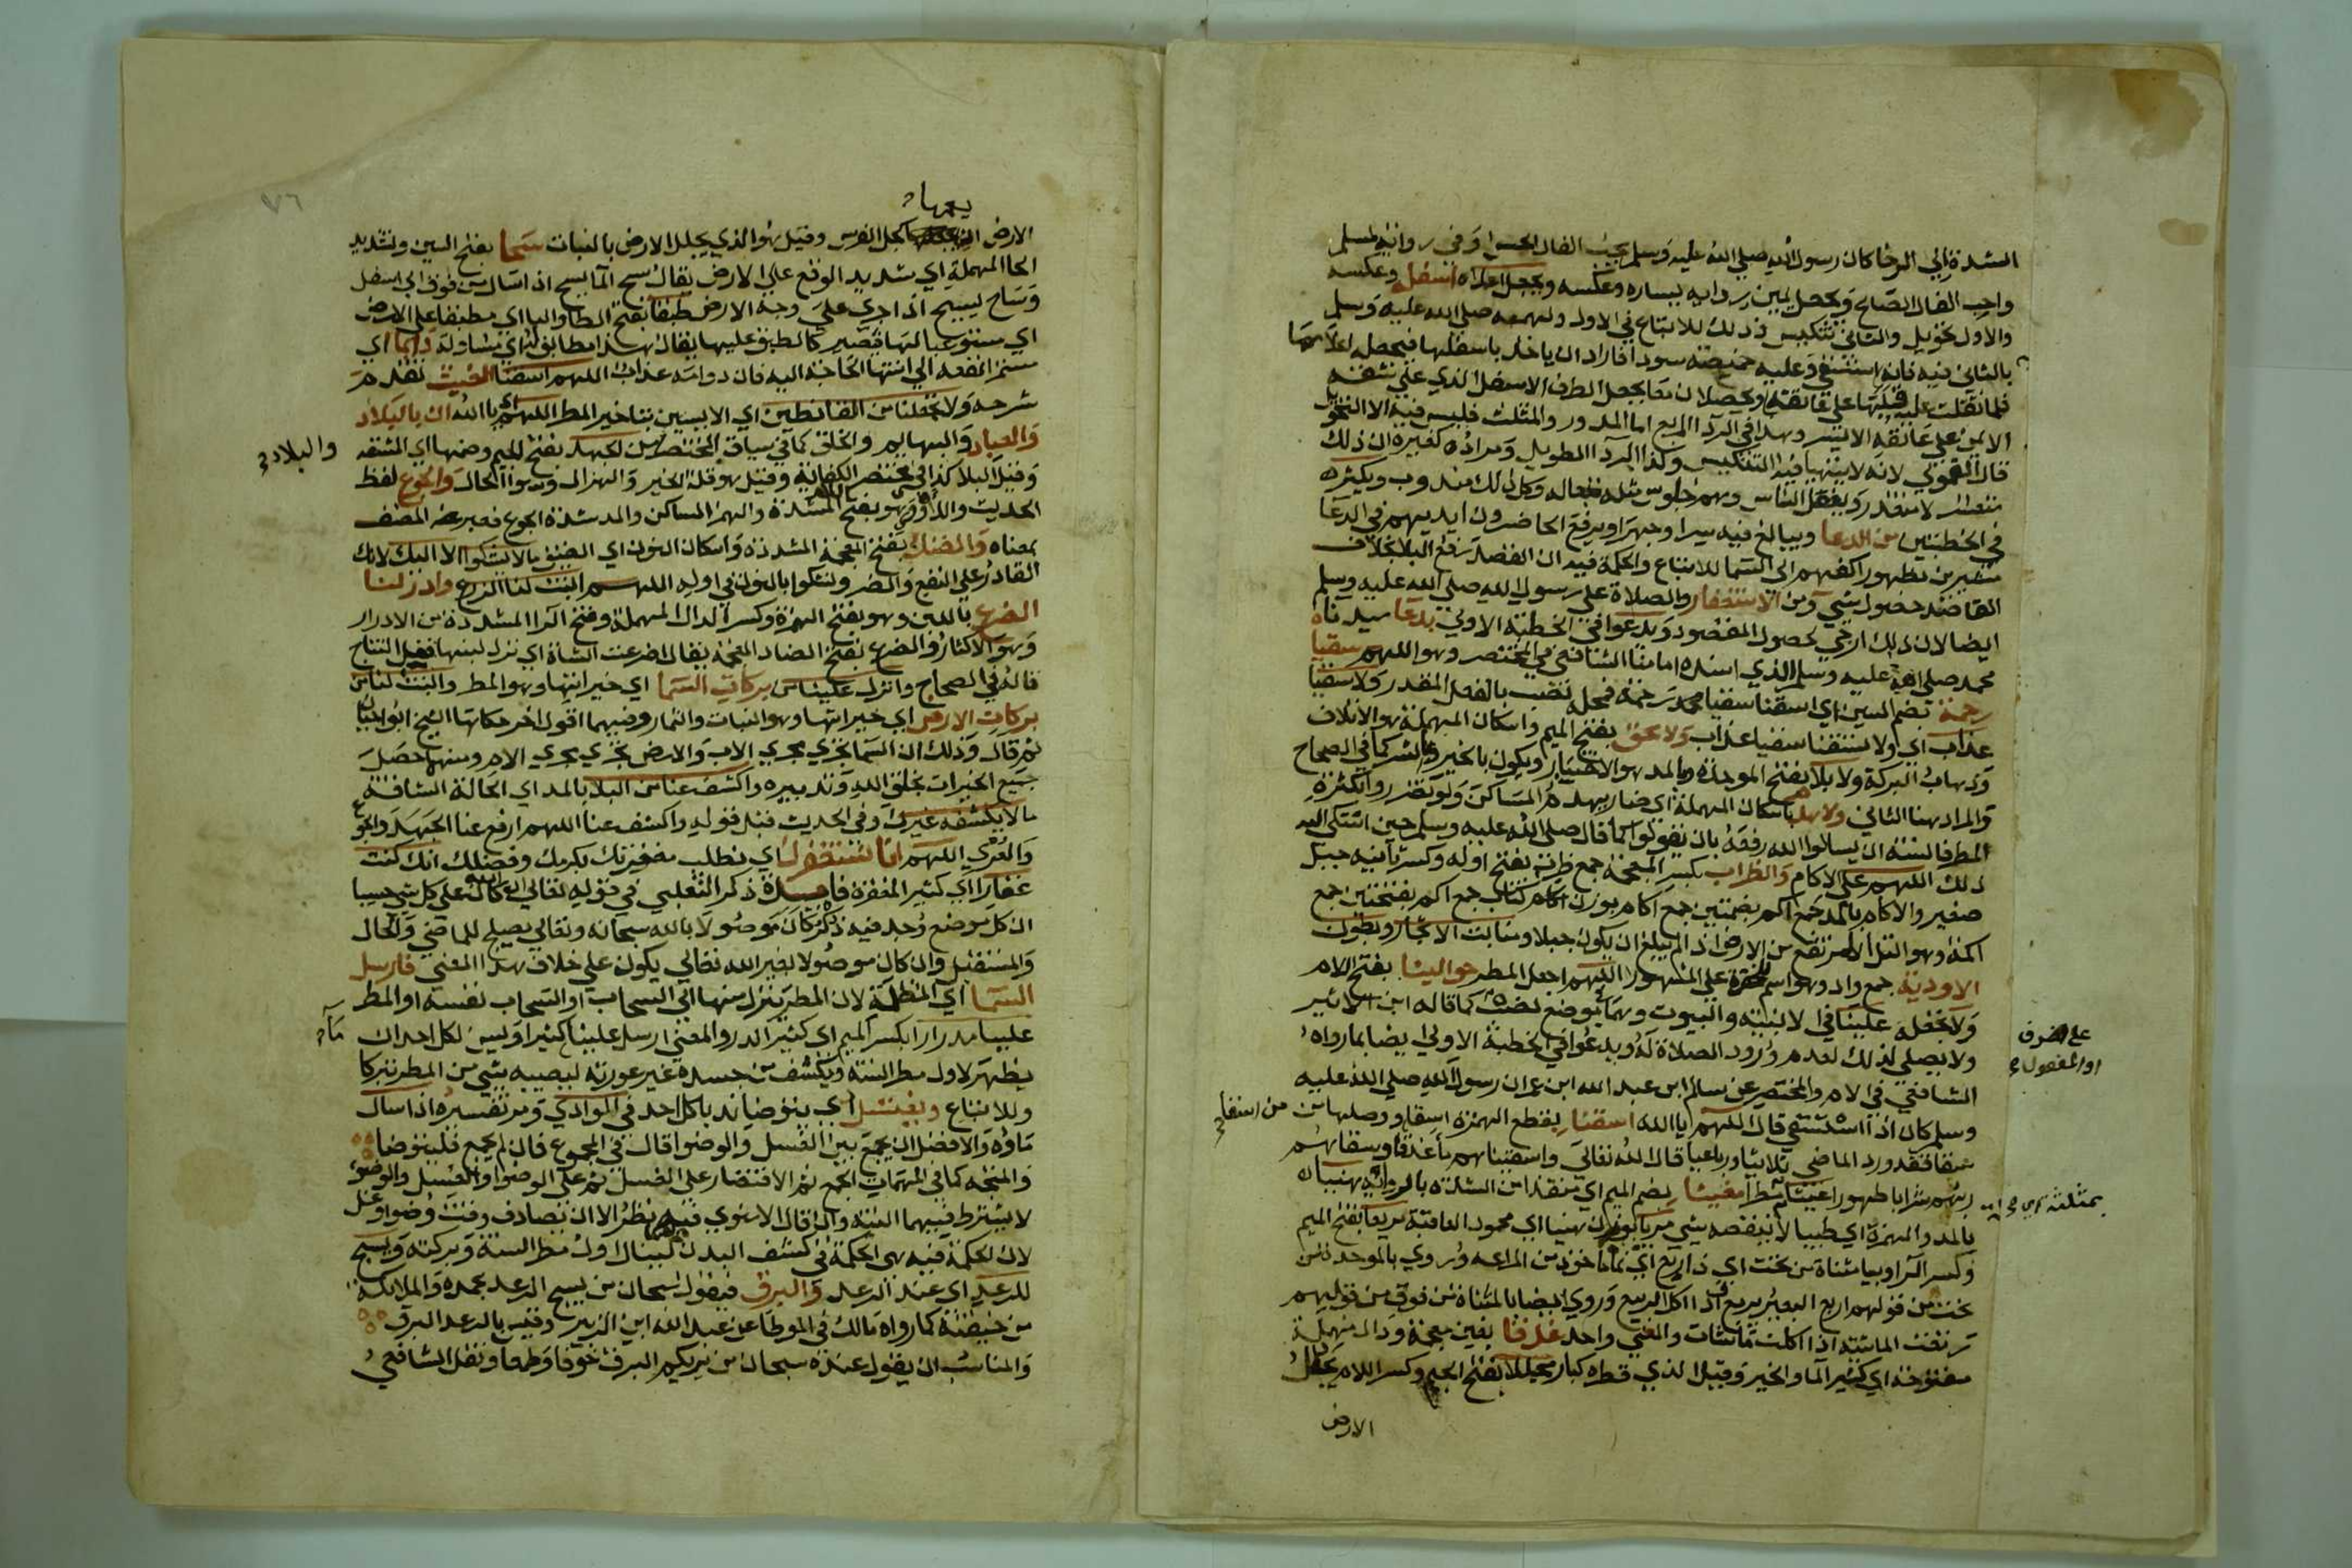 الشدة الي الرخا كان رسول الله صلي الله عليه وسلم يحب الفال الحسن وفي رواية لمسلم
واحب الفال الصالح ويجعل يمين ردايه يساره وعكسه ويجعل اعلاه اسفله وعكسه
والاول تحويل والثاني تنكيس وذلك للاتباع في الاول ولهمه صلي الله عليه وسلم
بالثاني فيه فانه استسقي وعليه خميصة سودا فاراد ان ياخذ باسفلها فيجعله اعلاها
فلما ثقلت عليه قلبها علي عاتقه ويحصلان معا بجعل الطرف الاسفل الذي علي شقه
الايمن علي عاتقه الايسر وهذا في الردا المربع اما المدور والمثلث فليس فيه الا التحويل
قال القمولي لانه لا يتهيا فيه التنكيس وكذا الردا الطويل ومراده كغيره ان ذلك
متعسر لا متعذر ويفعل الناس وهم جلوس مثله كفعاله وكل ذلك مندوب ويكثر
في الخطبتين من الدعا ويبالغ فيه سرا وجهرا ويرفع الحاضرون ايديهم في الدعا
مشيرين بظهور اكفهم الي السما للاتباع والحكمة فيه ان القصد رفع البلا بخلاف
القاصد حصول شي ومن الاستغفار والصلاة علي رسول الله صلي الله عليه وسلم
ايضا لان ذلك ارجي لحصول المقصود ويدعوا في الخطبة الاولي بدعا سيدنا
محمد صلي الله عليه وسلم الذي اسنده امامنا الشافعي في المختصر وهو اللهم سقيا
رحمة بضم السين اي اسقنا سقيا رحمة فمحله نصب بالفعل المقدر ولا سقيا
عذاب اي ولا تسقنا سقيا عذاب ولا محق بفتح الميم واسكان المهملة هو الاتلاف
وذهاب البركة ولا بلا بفتح الموحدة وبالمد هو الاختبار ويكون بالخير والشر كما في الصحاح
والمراد هنا الثاني ولا هدم باسكان المهملة اي ضار يهدم المساكن ولو تضرروا بكثرة
المطر فالسنة ان يسالوا الله رفعه بان يقولوا كما قال صلي الله عليه وسلم حين اشتكي اليه
ذلك اللهم علي الاكام والظراب بكسر المعجمة جمع ظرب بفتح اوله وكسر ثانيه جبل
صغير والاكام بالمد جمع اكم بضمتين جمع اكام بوزن كتاب جمع اكم بفتحتين جمع
اكمة وهو التل المرتفع من الارض اذا لم يبلغ ان يكون جبلا ومنابت الاشجار وبطون
الاودية جمع واد وهو اسم للحفرة علي المشهور اللهم اجعل المطر حوالينا بفتح اللام
ولا تجعله علينا في الابنية والبيوت وهما في موضع نصب كما قاله ابن الاثير
علي الظرف
او المفعول
ولا يصلي لذلك لعدم ورود الصلاة له ويدعوا في الخطبة الاولي ايضا بما رواه
الشافعي في الام والمختصر عن سالم ابن عبد الله ابن عمر ان رسول الله صلي الله عليه
وسلم كان اذا استسقي قال اللهم ايا الله اسقنا بقطع الهمزة من اسقي ووصلها من
سقا فقد ورد الماضي ثلاثيا ورباعيا قال الله تعالي واسقيناهم ماء غدقا وسقاهم
ربهم شرابا طهورا غيثا مطرا مغيثا بضم الميم اي منقذا من الشدة بارواية هنيا
بالمد والهمزة اي طيبا لا ينغصه شي مريا بوزن هنيا اي محمود العاقبة مريعا بفتح الميم
وكسر الرا وبيا مثناة من تحت اي ذا ريع اي نما ماخوذ من المراعه وروي بالموحدة من
تحت من قولهم اربع البعير يربع اذا اكل الربيع وروي ايضا بالمثناة من فوق من قولهم
رتعت الماشية اذا اكلت ما شات والمعني واحد غدقا بغين معجمة ودال مهملة
مفتوحة اي كثير الما والخير وقيل الذي قطره كبار مجللا بفتح الجيم وكسر اللام يجلل
الارض
يعمها
الارض كجل الفرس وقيل هو الذي يجلل الارض بالنبات سحا بفتح السين وتشديد
الحا المهملة اي شديد الوقع علي الارض يقال سح الما يسح اذا سال من فوق الي اسفل
وساح يسيح اذا جري علي وجه الارض طبقا بفتح الطا والبا اي مطبقا علي الارض
اي مستوعبا لها فتصير كالطبق عليها يقال هذا مطابق له اي مساو له دائما اي
مستمرا نفعه الي انتها الحاجة اليه فان دوامه عذاب اللهم اسقنا الغيث تقدم
شرحه ولا تجعلنا من القانطين اي الايسين بتاخير المطر اللهم يا الله ان بالبلاد
والعباد والبهايم والخلق كما في سياق المختصر من الجهد بفتح الجيم وضمها اي المشقة
والبلاء
وقيل البلا كذا في مختصر الكفاية وقيل هو قلة الخير والهزال وسوا الحال والجوع لفظ
الحديث واللأوى وهو بفتح المشددة والهمز الساكن والمد شدة الجوع فعبر عنه المصنف
بمعناه والضنك بفتح المعجمة المشددة واسكان النون اي الضيق ما لا نشكوا الا اليك لانك
القادر علي النفع والضر ونشكوا بالنون في اوله اللهم انبت لنا الزرع وادر لنا
الضرع باللبن وهو بفتح الهمزة وكسر الدال المهملة وفتح الرا المشددة من الادرار
وهو الاكثار والضرع بفتح الضاد المعجمة يقال اضرعت الشاة اي نزل لبنها قبل النتاج
قاله في الصحاح وانزل علينا من بركات السما اي خيراتها وهو المطر وانبت لنا من
بركات الارض اي خيراتها وهو النبات والثمار وفيهما اقول اخر حكاها الشيخ ابو حيان
ثم قال وذلك ان السما تجري مجري الاب والارض تجري مجري الام ومنهما حصل
جميع الخيرات بخلق الله وتدبيره واكشف عنا من البلا بالمد اي الحالة الشاقة
ما لا يكشفه غيرك وفي الحديث قبل قوله واكشف عنا اللهم ارفع عنا الجهد والجوع
والعري اللهم انا نستغفرك اي نطلب مغفرتك بكرمك وفضلك انك كنت
غفارا اي كثير المغفرة فايدة ذكر الثعلبي في قوله تعالي ان الله كان علي كل شي حسيبا
ان كل موضع وجد فيه ذكر كان موصولا بالله سبحانه وتعالي يصلح للماضي والحال
والمستقبل وان كان موصولا بغير الله تعالي يكون علي خلاف هذا المعني فارسل
السما اي المظلة لان المطر ينزل منها الي السحاب او السحاب نفسه او المطر
علينا مدرارا بكسر الميم اي كثير الدر والمعني ارسل علينا ماء كثيرا ويسن لكل احد ان
يظهر لاول مطر السنة ويكشف من جسده غير عورته ليصيبه شي من المطر تبركا
وللاتباع ويغتسل اي يتوضا ندبا كل احد في الوادي ومر تفسيره اذا سال
ماؤه والافضل ان يجمع بين الغسل والوضوا قال في المجموع فان لم يجمع فليتوضا
والمتجه كما في المهمات الجمع ثم الاقتصار علي الغسل ثم علي الوضوا والغسل والوضوء
لا يشترط فيهما النية وان قال الاسنوي فيه نظر الا ان يصادف وقت وضوا وغسل
لان الحكمة فيه هي الحكمة في كشف البدن لينال اول مطر السنة وبركته ويسبح
للرعد اي عند الرعد والبرق فيقول سبحان من يسبح الرعد بحمده والملائكة
من خيفته كما رواه مالك في الموطا عن عبد الله ابن الزبير وقيس بالرعد البرق
والمناسب ان يقول عنده سبحان من يريكم البرق خوفا وطمعا ونقل الشافعي